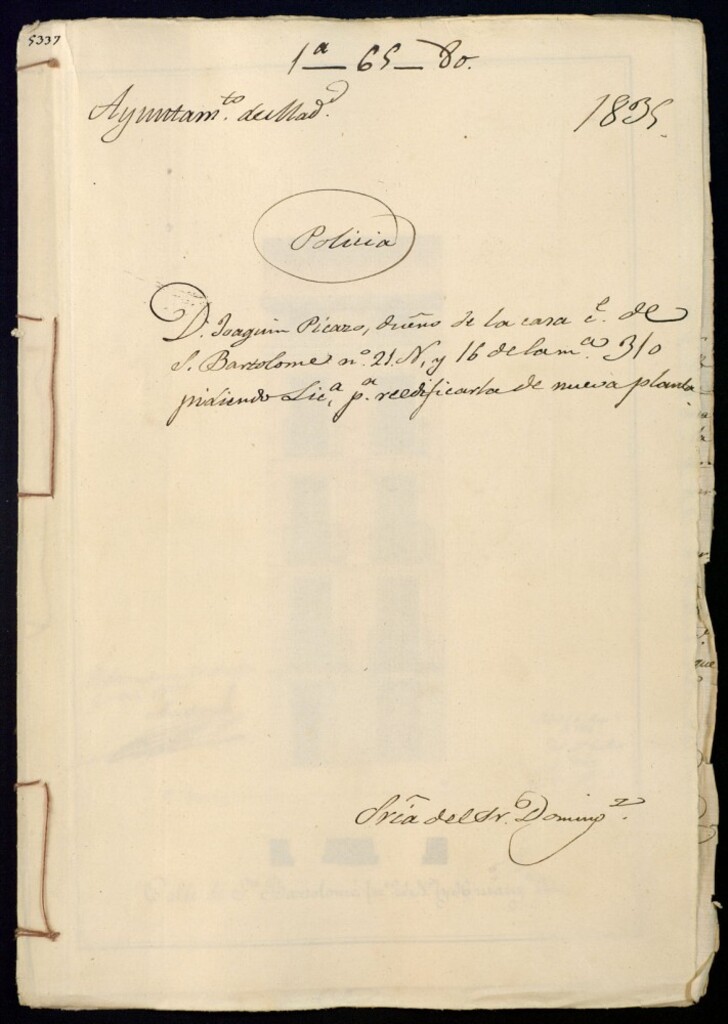 5337
1ª — 65 — 80.
Ayuntam.to de Mad.d
1835.
Policia
D. Joaquin Picazo, dueño de la casa c.e de
S. Bartolome nº. 21. N, y 16 de la m.ª 310
pidiendo Lic.ª p.ª reedificarla de nueva planta.
Sria del Sr. Doming.z